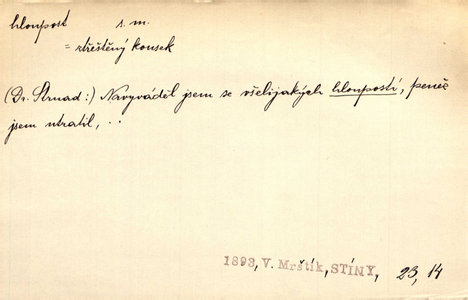 hloupost s. m.
= ztřeštěný kousek
(Dr. Strnad:) Navyváděl jsem se všelijakých hloupostí, peněz
jsem utratil, . .
1893, V. Mrštík, STÍNY, 23, 14